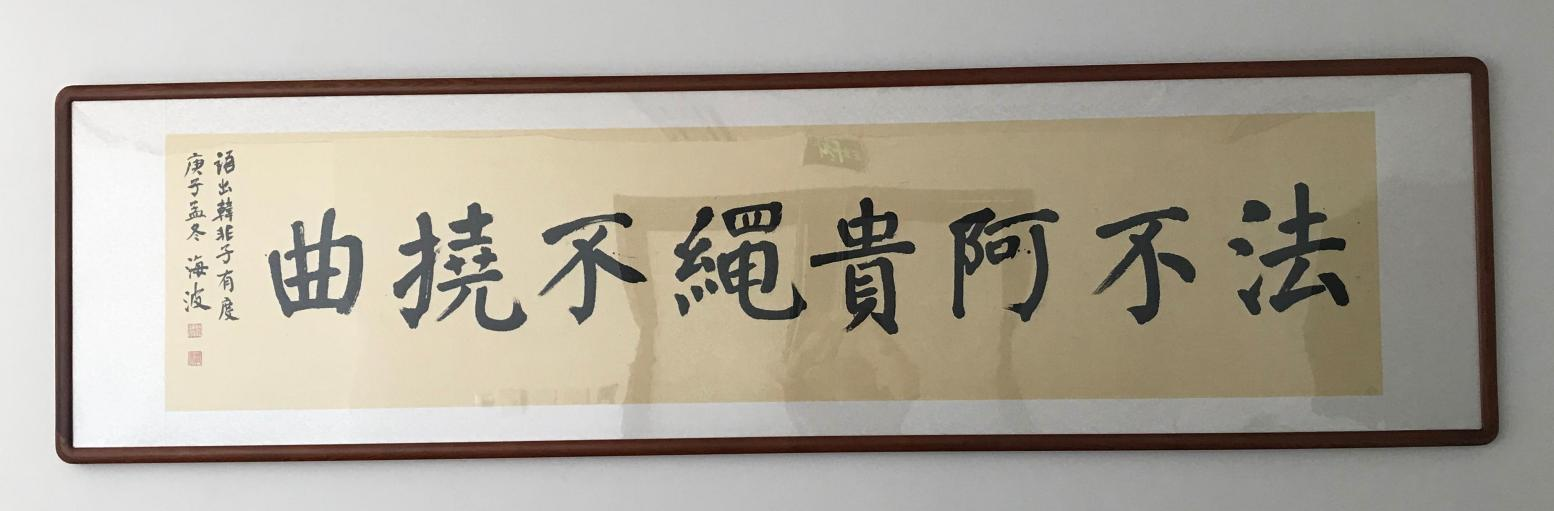 法不阿貴繩不撓曲
語出韓非子有度
庚子孟冬 海波